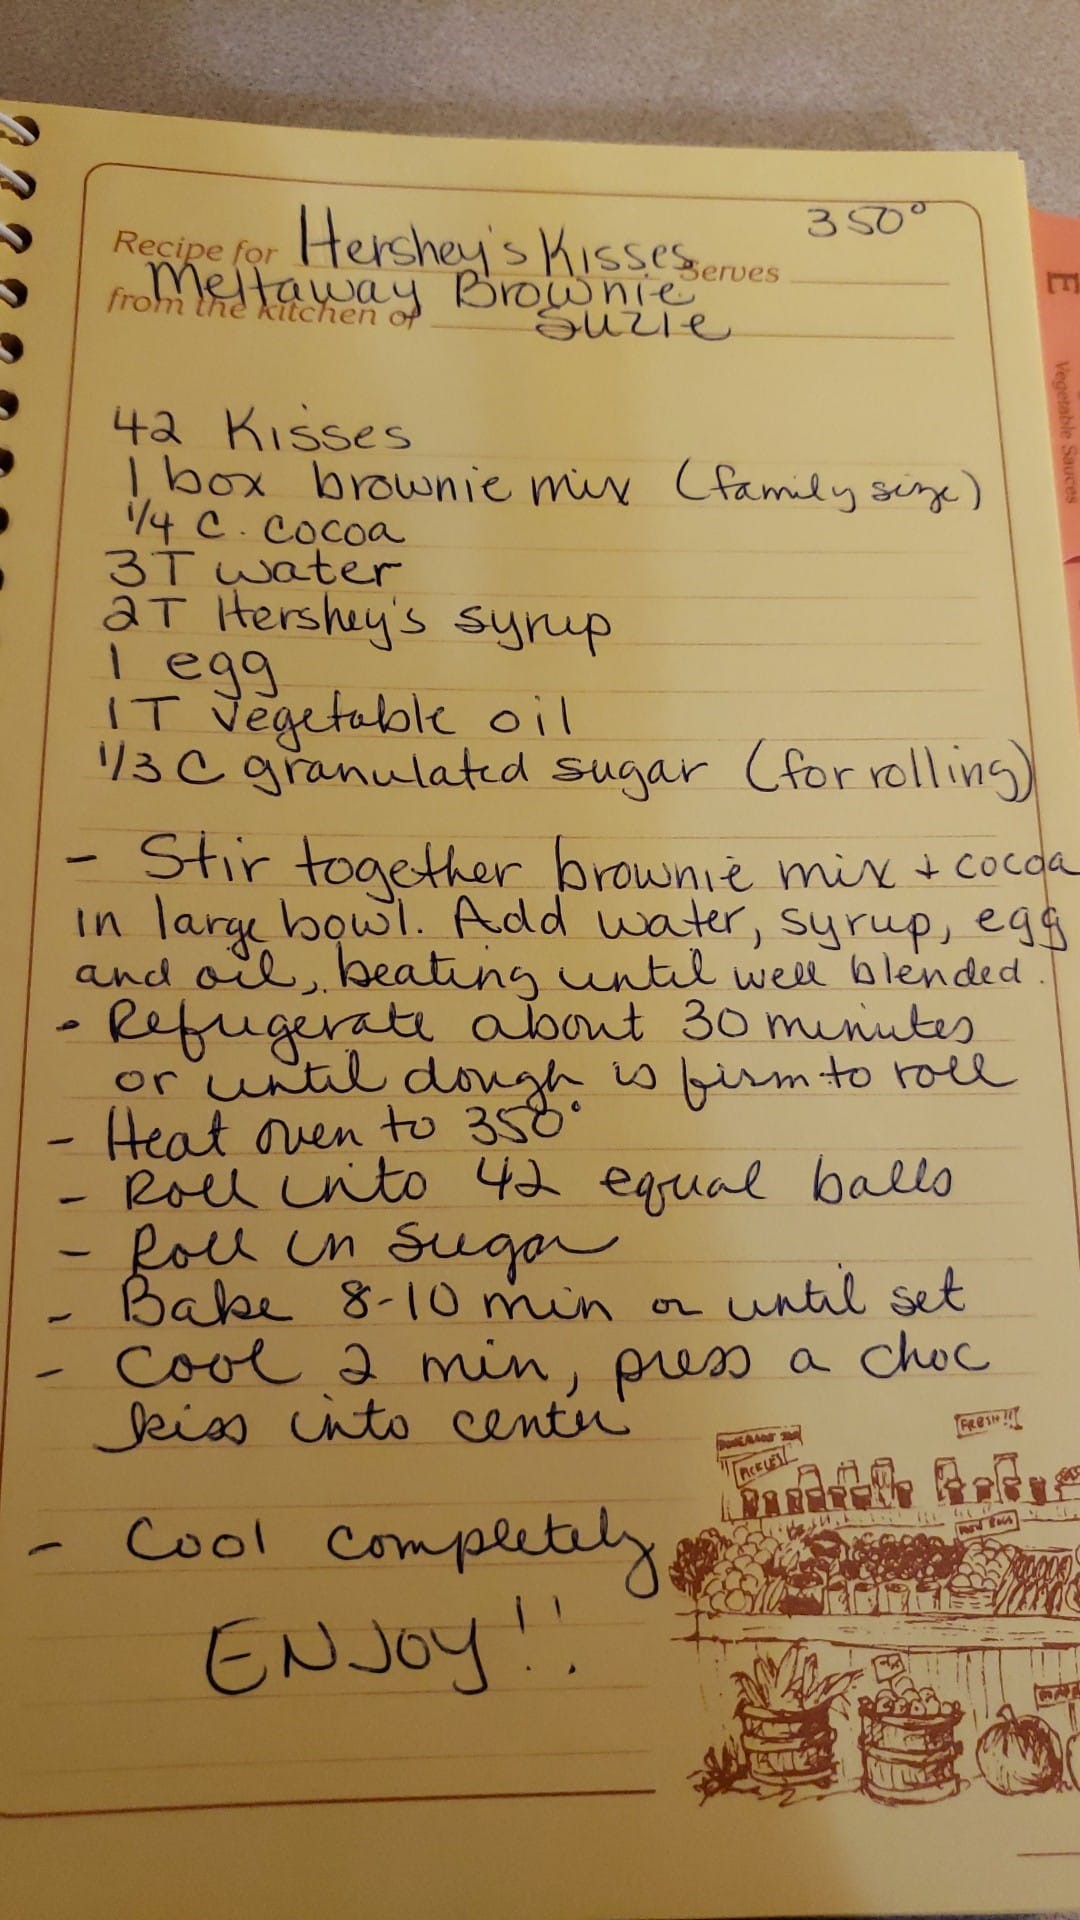 350°
Recipe for Hershey's Kisses Serves
Meltaway Brownie
from the kitchen of Suzie
E
Vegetable Sauces
42 Kisses
1 box brownie mix (family size)
1/4 C. cocoa
3T water
2T Hershey's syrup
1 egg
1T vegetable oil
1/3 C granulated sugar (for rolling)
- Stir together brownie mix + cocoa
in large bowl. Add water, syrup, egg
and oil, beating until well blended.
- Refrigerate about 30 minutes
or until dough is firm to roll
- Heat oven to 350°
- Roll into 42 equal balls
- Roll in sugar
- Bake 8-10 min or until set
- Cool 2 min, press a choc
kiss into center
FRESH!!
PICKLES
- Cool completely
ENJOY!!